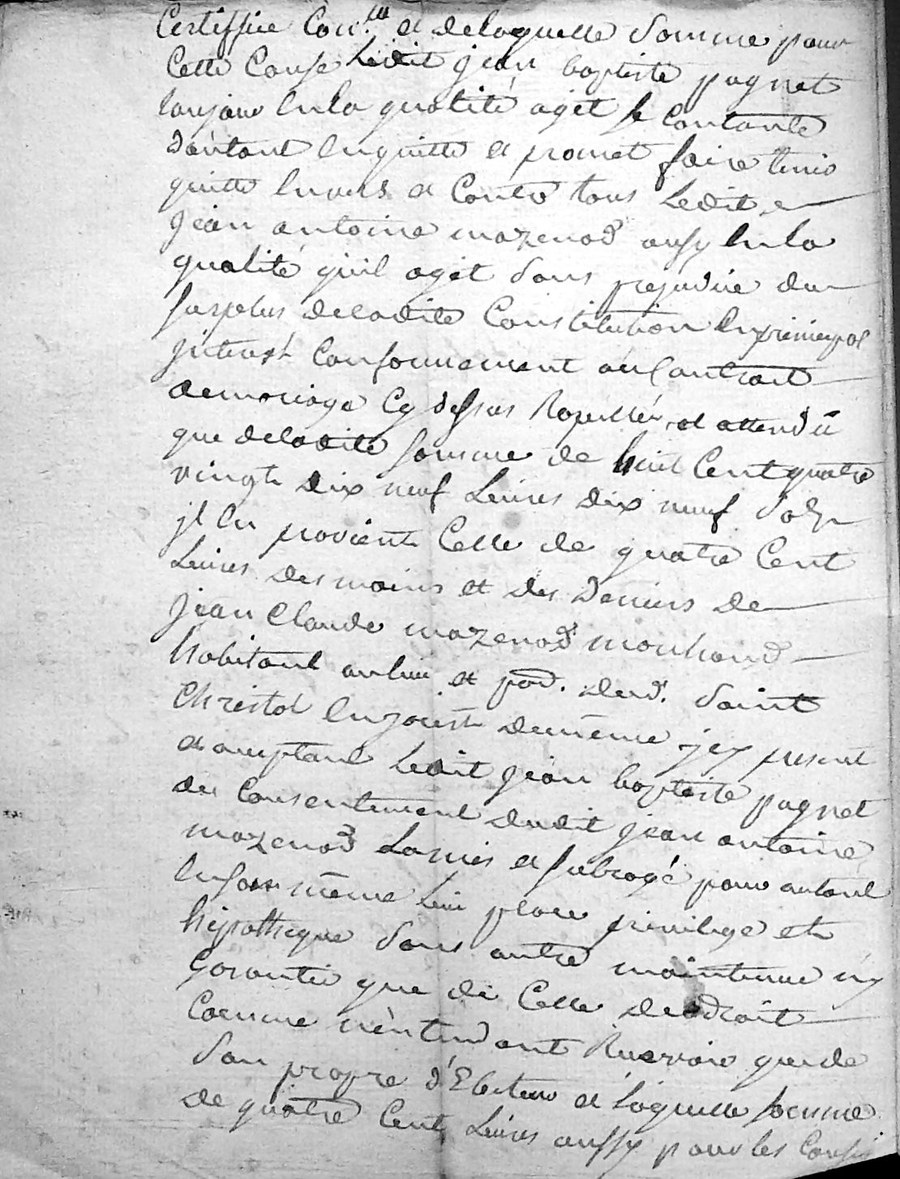 Certiffiée et delaquelle somme pour
Cette Cause Ledit jean baptiste pagnet
En la qualité agit se Contante
d'autant En quitte et promet faire tenir
quitte Envers et Contre tous Ledit
jean antoine mazenod aussy En la
qualité qu'il agit sans prejudice du
surplus deladite Constitution En principal
jnterest Conformement au Contrait
demariage Cy dessus Rapellée, et attendu
que deladite somme de huit Cent quatre
vingt dix neuf Livres dix neuf sols
jl En provient Celle de quatre Cent
Livres des mains et des Deniers de
jean Claude mazenod marchand
habitant au lieu et par. dud. Saint
Christol En jarest demême jcy present
acceptant Ledit jean baptiste pagnet
du Consentement dudit jean antoine
mazenod La mis et subrogé pour autant
En son même lieu place privilege et
hipotheque sans autre maintenue ny
Garantie que de Celle dedroit
Comme n'entendant Recevoir que de
son propre d'Ebiteur et laquelle somme
de quatre Cent Livres aussy pour les